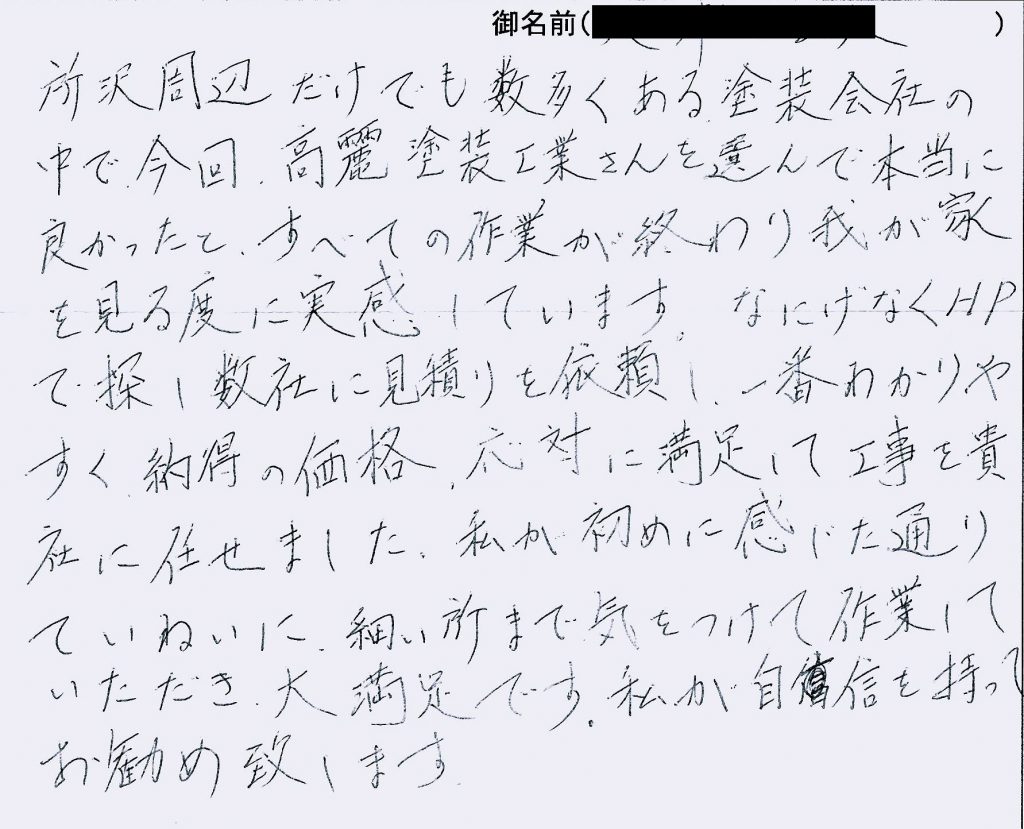 御名前( )
所沢周辺だけでも数多くある塗装会社の
中で、今回、高麗塗装工業さんを選んで本当に
良かったと、すべての作業が終わり我が家
を見る度に実感しています。なにげなくHP
で探し数社に見積りを依頼し、一番わかりや
すく、納得の価格、応対に満足して工事を貴
社に任せました。私が初めに感じた通り
ていねいに、細い所まで気をつけて作業して
いただき、大満足です。私が自信を持って
お勧め致します。